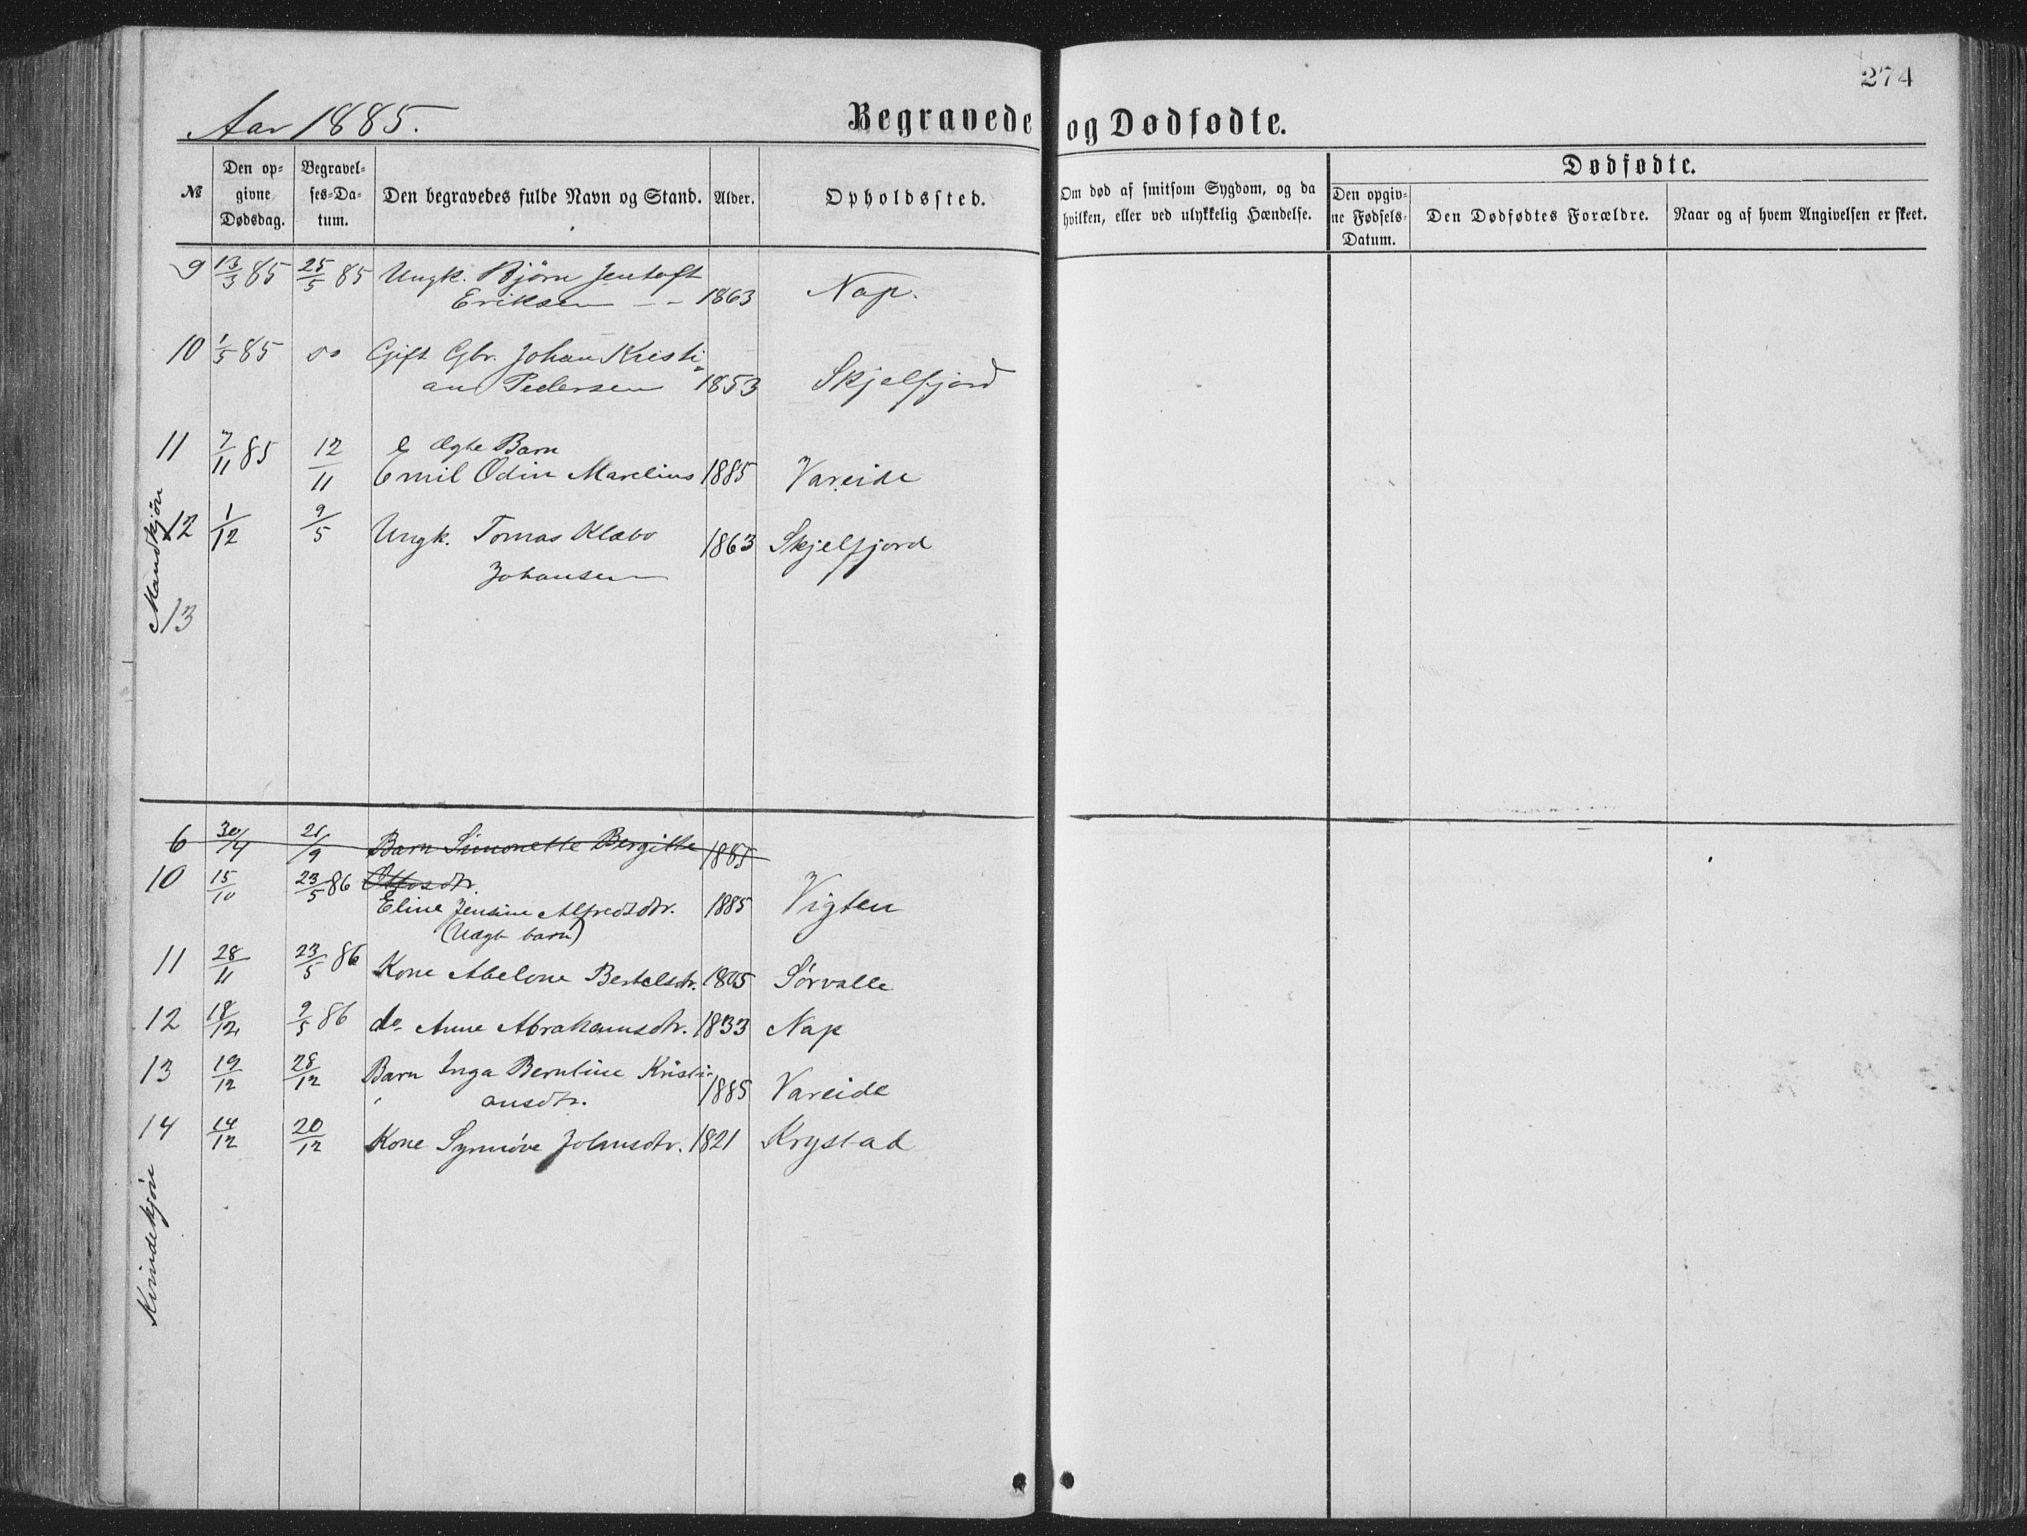 274
Aar 1885.
Begravede og Dødfødte.
№
Den opgivne Dødsdag.
Begravelses-Datum.
Den begravedes fulde Navn og Stand.
Alder.
Opholdssted.
Om død af smitsom Sygdom, og da hvilken, eller ved ulykkelig Hændelse.
Dødfødte.
Den opgivne Fødsels-Datum.
Den Dødfødtes Forældre.
Naar og af hvem Angivelsen er skeet.
Mandkjøn
9 13/3 85 25/5 85 Ungk. Bjørn Jentoft
Eriksen 1863 Nap.
10 1/5 85 do Gift Gbr. Johan Kristi-
an Pedersen 1853 Skjelfjord
11 7/11 85 12/11 Ægte Barn
Emil Odin Marelius 1885 Vareide
12 1/12 9/5 Ungk. Tomas Klæbo 1863 Skjelfjord
Johansen
13
Kvindekjøn
6 30/4 21/9 Barn Simonette Bergitte 1885
Ottosdtr.
10 15/10 23/5 86 Eline Jensine Alfredsdtr. 1885 Vigten
(Uægt barn)
11 28/11 23/5 86 Kone Abelone Bertelsdtr. 1805 Sørvalle
12 18/12 9/5 86 do Anne Abrahamsdtr. 1833 Nap
13 19/12 28/12 Barn Inga Berntine Kristi-
ansdtr. 1885 Vareide
14 14/12 20/12 Kone Synnøve Johnsdtr. 1821 Krystad